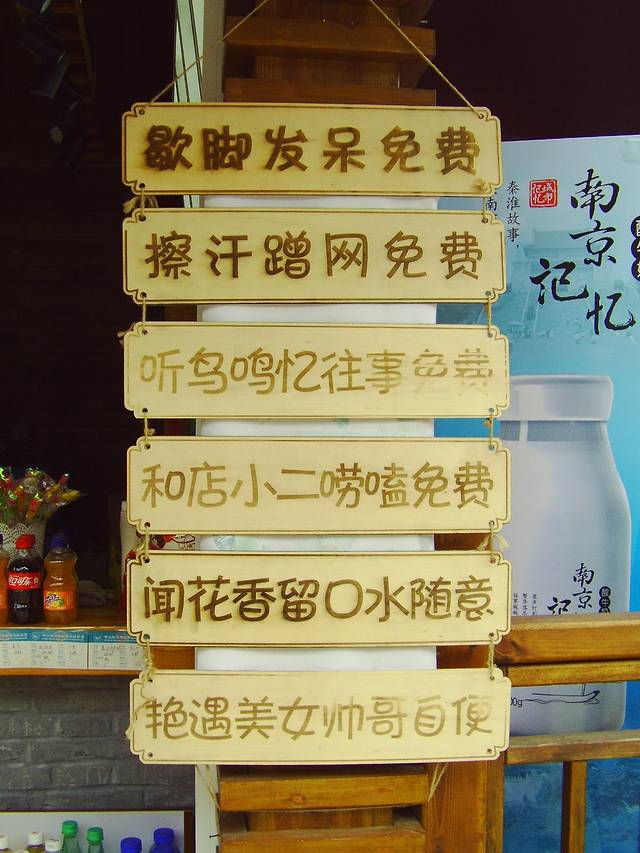 歇脚发呆免费
擦汗蹭网免费
听鸟鸣忆往事免费
和店小二唠嗑免费
闻花香留口水随意
艳遇美女帅哥自便
南京
记忆
城市记忆
秦淮故事,
南
南京
记